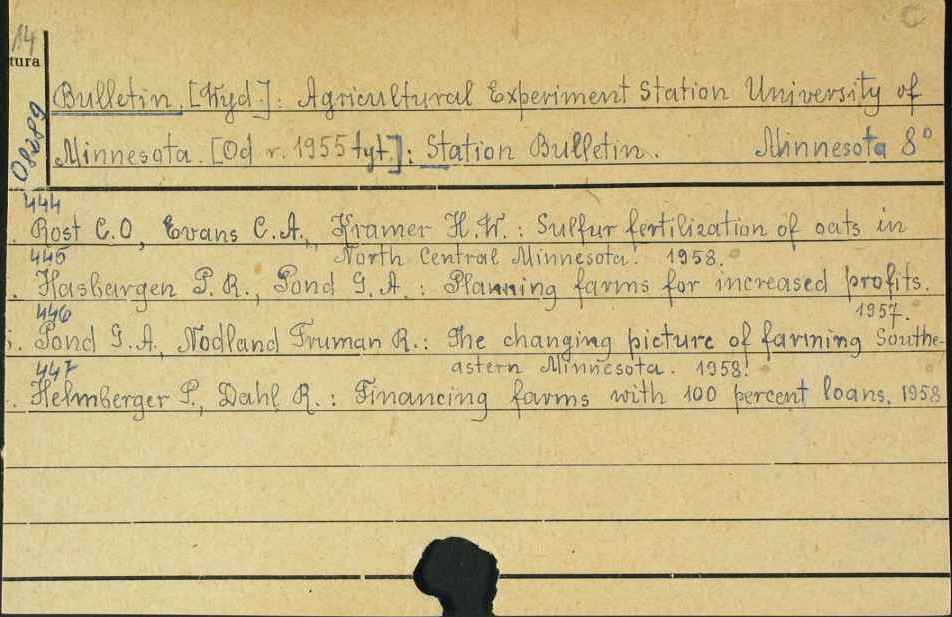 14
tura
Bulletin. [Wyd.]: Agricultural Experiment Station University of
Minnesota. [Od r. 1955 tyt.]: Station Bulletin. Minnesota 8°
444
Rost C.O, Evans C.A., Kramer H.W.: Sulfur fertilization of oats in
North Central Minnesota. 1958.
445
Hasbargen P.R., Pond G.A.: Planning farms for increased profits.
1957.
446
Pond G.A., Nodland Truman R.: The changing picture of farming Southe-
astern Minnesota. 1958.
447
Helmberger P., Dahl R.: Financing farms with 100 percent loans. 1958